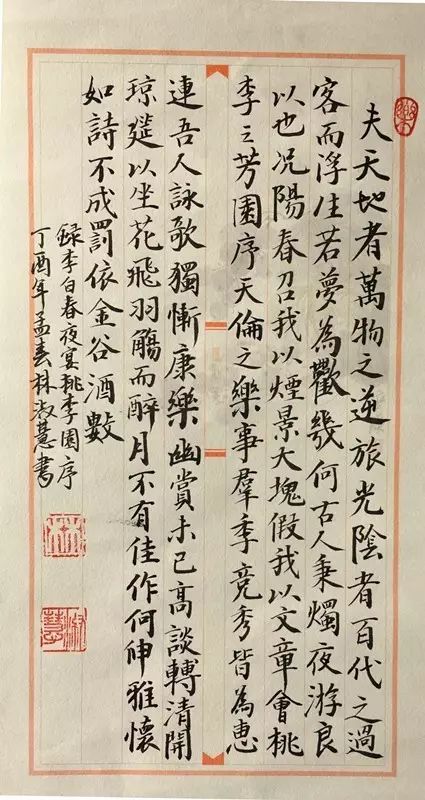 夫天地者萬物之逆旅光陰者百代之過
客而浮生若夢為歡幾何古人秉燭夜游良
以也况陽春召我以煙景大塊假我以文章會桃
李之芳園序天倫之樂事羣季竞秀皆為惠
連吾人詠歌獨慚康樂幽賞未已高談轉清開
琼筵以坐花飛羽觴而醉月不有佳作何伸雅懷
如詩不成罰依金谷酒數
錄李白春夜宴桃李園序
丁酉年孟春林淑慧書